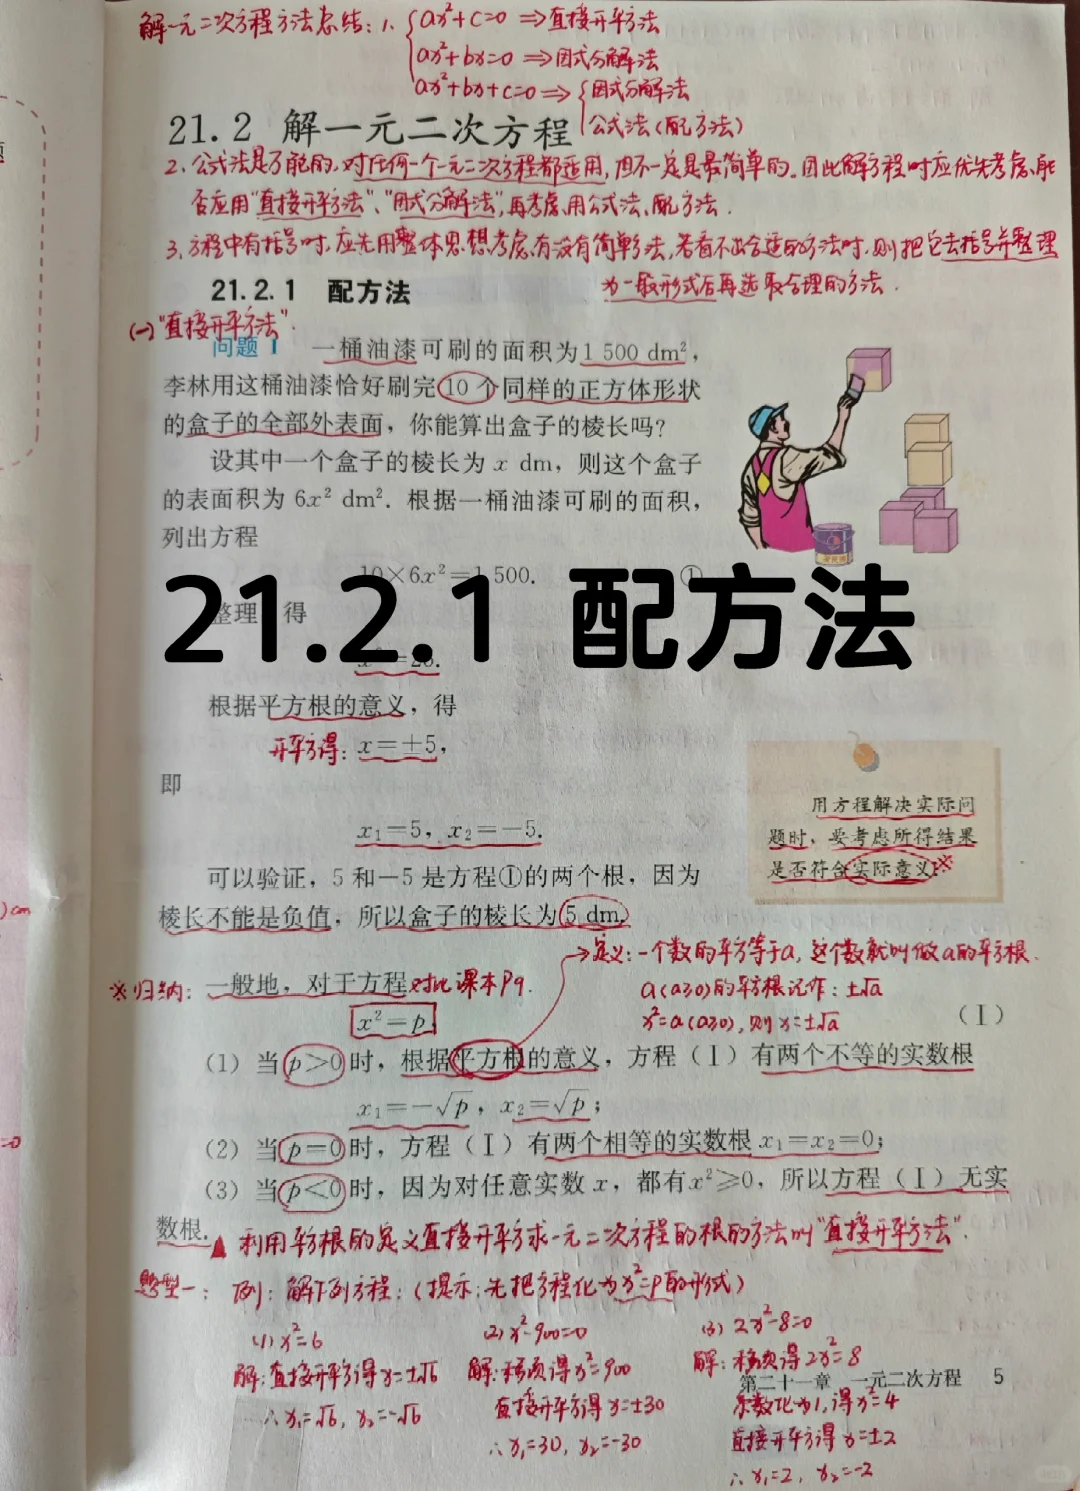 解一元二次方程方法总结:1. ax²+c=0 ⇒直接开平方法
ax²+bx=0 ⇒因式分解法
ax²+bx+c=0⇒ 因式分解法
公式法(配方法)
21.2 解一元二次方程
2.公式法是万能的,对任何一个一元二次方程都适用,但不一定是最简单的。因此解方程时应优先考虑能
否应用"直接开平方法"、"因式分解法",再考虑用公式法、配方法.
3.方程中有括号时,应先用整体思想考虑有没有简单方法,若看不出合适的方法时,则把它去括号并整理
为一般形式后再选取合理的方法.
21.2.1 配方法
(一)"直接开平方法".
问题1 一桶油漆可刷的面积为1 500 dm²,
李林用这桶油漆恰好刷完10个同样的正方体形状
的盒子的全部外表面,你能算出盒子的棱长吗?
设其中一个盒子的棱长为 x dm,则这个盒子
的表面积为 6x² dm². 根据一桶油漆可刷的面积,
列出方程
10×6x²=1 500. ①
21.2.1 配方法
整理,得
x²=25.
根据平方根的意义,得
开平方得: x=±5,
即
x₁=5, x₂=-5.
用方程解决实际问
题时,要考虑所得结果
是否符合实际意义.※
可以验证,5和-5是方程①的两个根,因为
棱长不能是负值,所以盒子的棱长为5 dm.
→定义:一个数的平方等于a,这个数就叫做a的平方根.
※归纳: 一般地,对于方程 对比课本P9.
a(a≥0)的平方根记作:±√a
x²=p, (Ⅰ)
x²=a(a≥0),则x=±√a
(1) 当p>0时,根据平方根的意义,方程(Ⅰ)有两个不等的实数根
x₁=-√p, x₂=√p;
(2) 当p=0时,方程(Ⅰ)有两个相等的实数根 x₁=x₂=0;
(3) 当p<0时,因为对任意实数 x,都有x²≥0,所以方程(Ⅰ)无实
数根.
▲ 利用平方根的定义直接开平方求一元二次方程的根的方法叫"直接开平方法".
题型一: 例:解下列方程:(提示:先把方程化为x²=p的形式)
(1)x²=6 (2)x²-900=0 (3) 2x²-8=0
解:直接开平方得x=±√6 解:移项得x²=900 解:移项得2x²=8
第二十一章 一元二次方程 5
∴x₁=√6, x₂=-√6 直接开平方得x=±30 系数化为1,得x²=4
∴x₁=30, x₂=-30 直接开平方得x=±2
∴x₁=2, x₂=-2
)cm
=0